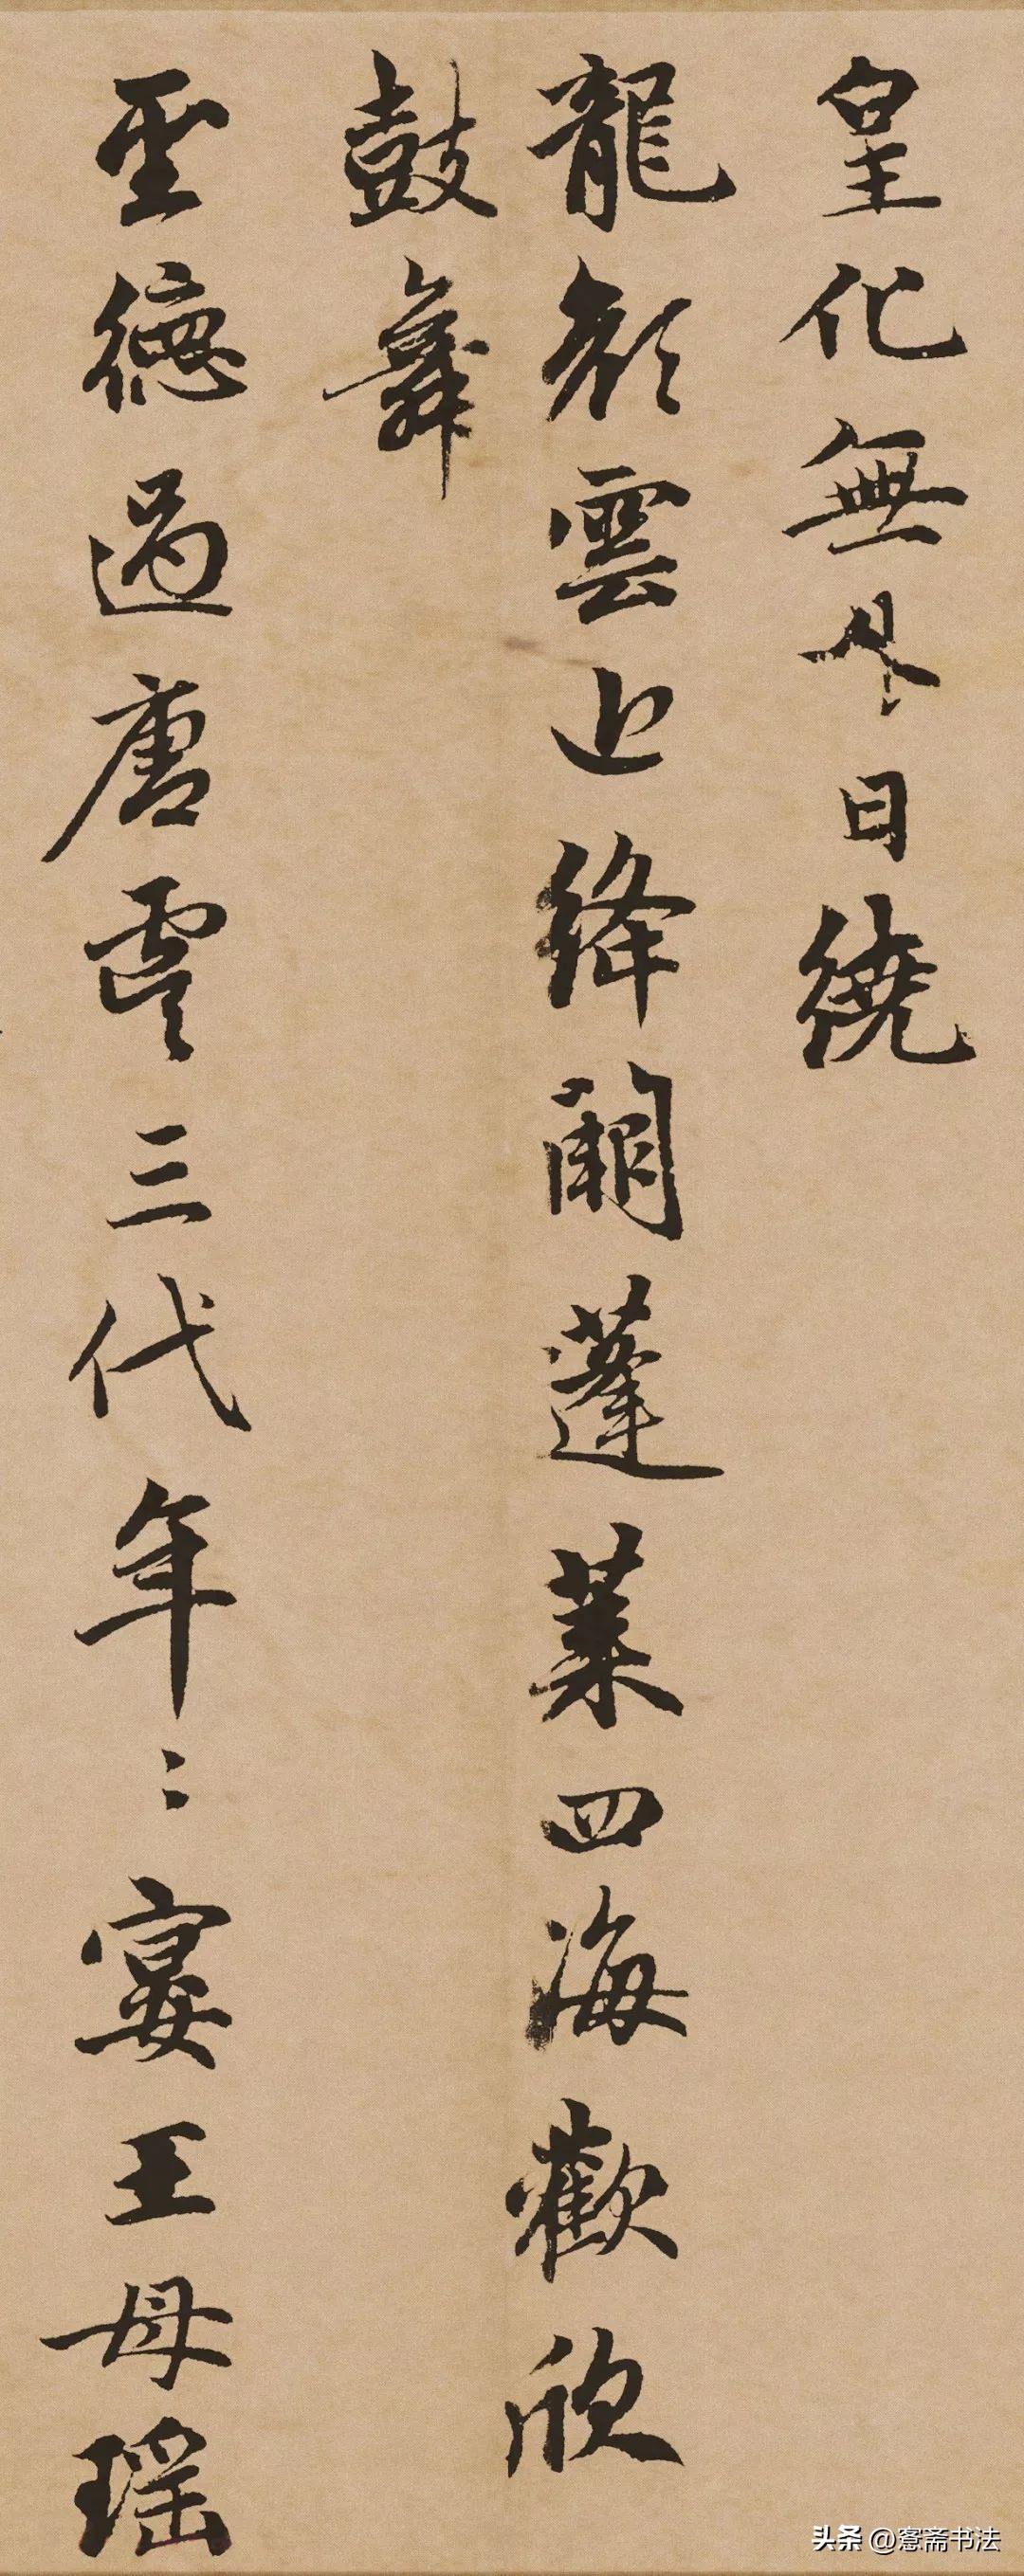 皇化無日繞
龍顏雲近絳闕蓬萊四海歡欣
鼓舞
聖德過唐虞三代年〻宴王母瑶
头条 @愙斋书法